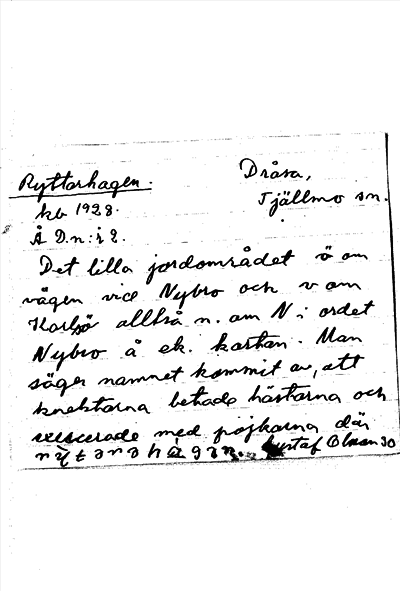 Ryttarhagen. Dråsa,
Tjällmo sn.
kb 1928.
Å D.n:r 2.
Det lilla jordområdet ö om
vägen vid Nybro och v om
Karlsjö alltså n. om N i ordet
Nybro å ek. kartan. Man
säger namnet kommit av, att
knektarna betade hästarna och
exercerade med pojkarna där
Gustaf Olsson 30